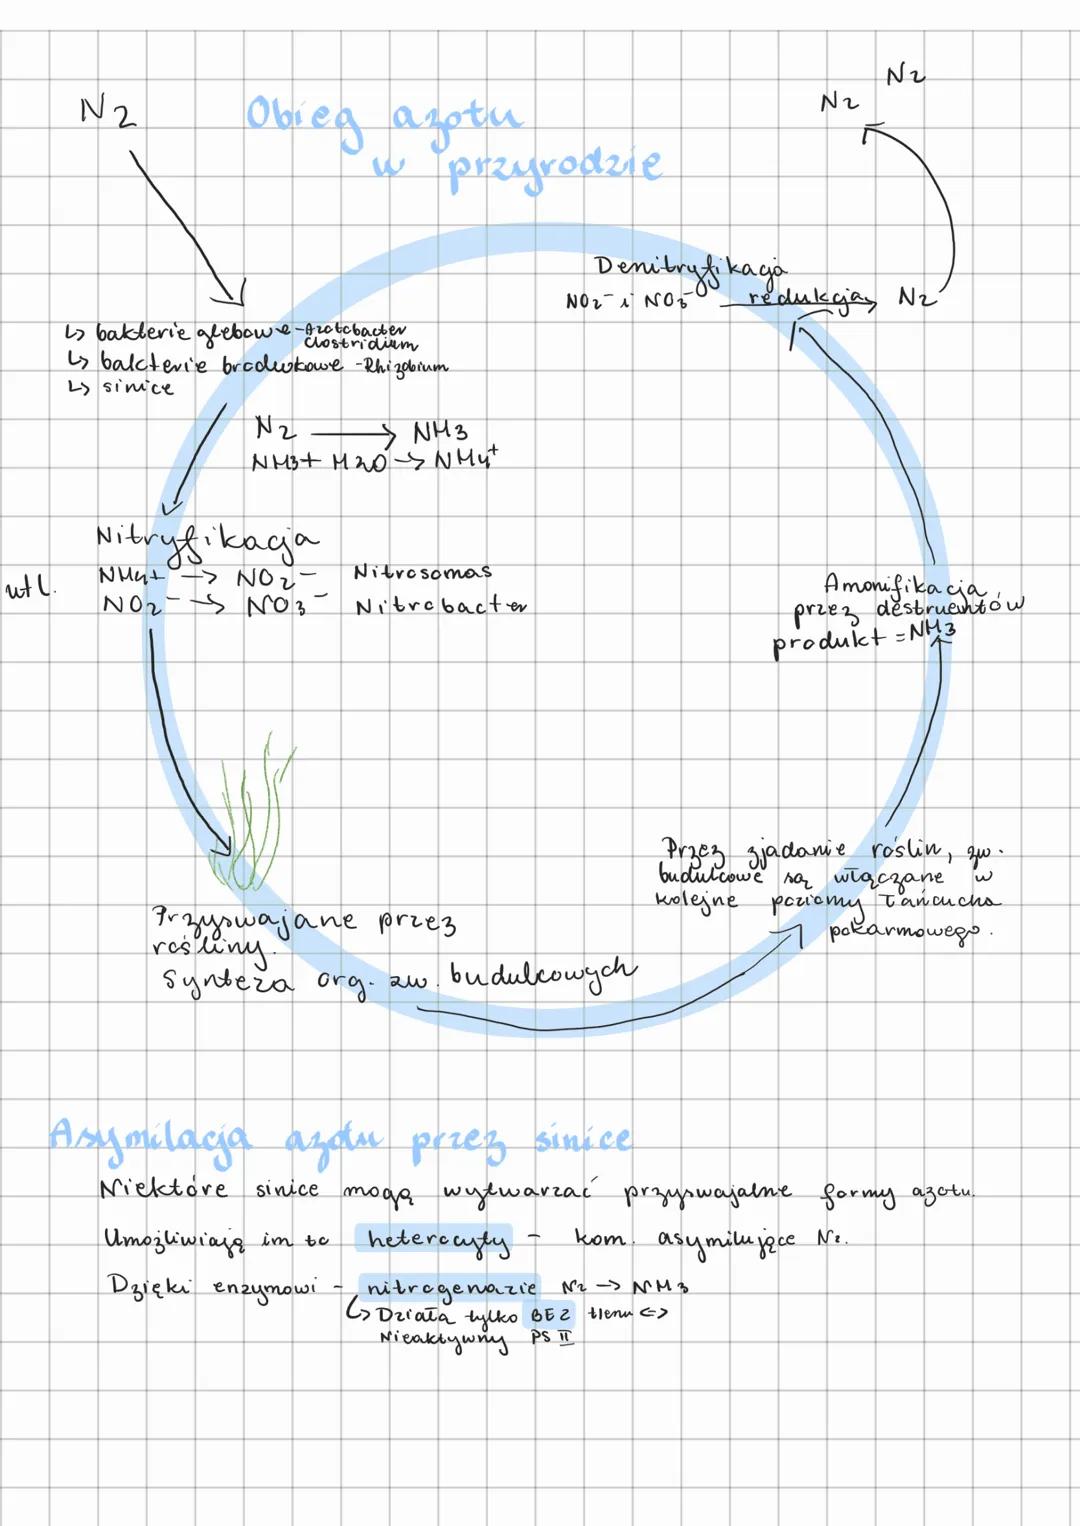 N2
Obieg azotu
w przyrodzie
N2
N2
Denitryfikacja
NO2⁻ i NO3⁻ redukcja N2
↳ bakterie glebowe - Azotobacter
Clostridium
↳ bakterie brodwkowe - Rhizobium
↳ sinice
N2 → NH3
NH3 + H2O → NH4⁺
Nitryfikacja
utl. NH4+ → NO2⁻ Nitrosomas
NO2⁻ → NO3⁻ Nitrobacter
Amonifikacja
przez destruentów
produkt = NH3
Przez zjadanie roślin, zw.
budulcowe są włączane w
kolejne poziomy łańcucha
pokarmowego.
Przyswajane przez
rośliny.
Synteza org. zw. budulcowych
Asymilacja azotu przez sinice
Niektóre sinice mogą wytwarzać przyswajalne formy azotu.
Umożliwiają im to heterocyty - kom. asymilujące N2.
Dzięki enzymowi - nitrogenazie N2 → NH3
↳ Działa tylko BEZ tlenu <=>
Nieaktywny PS II